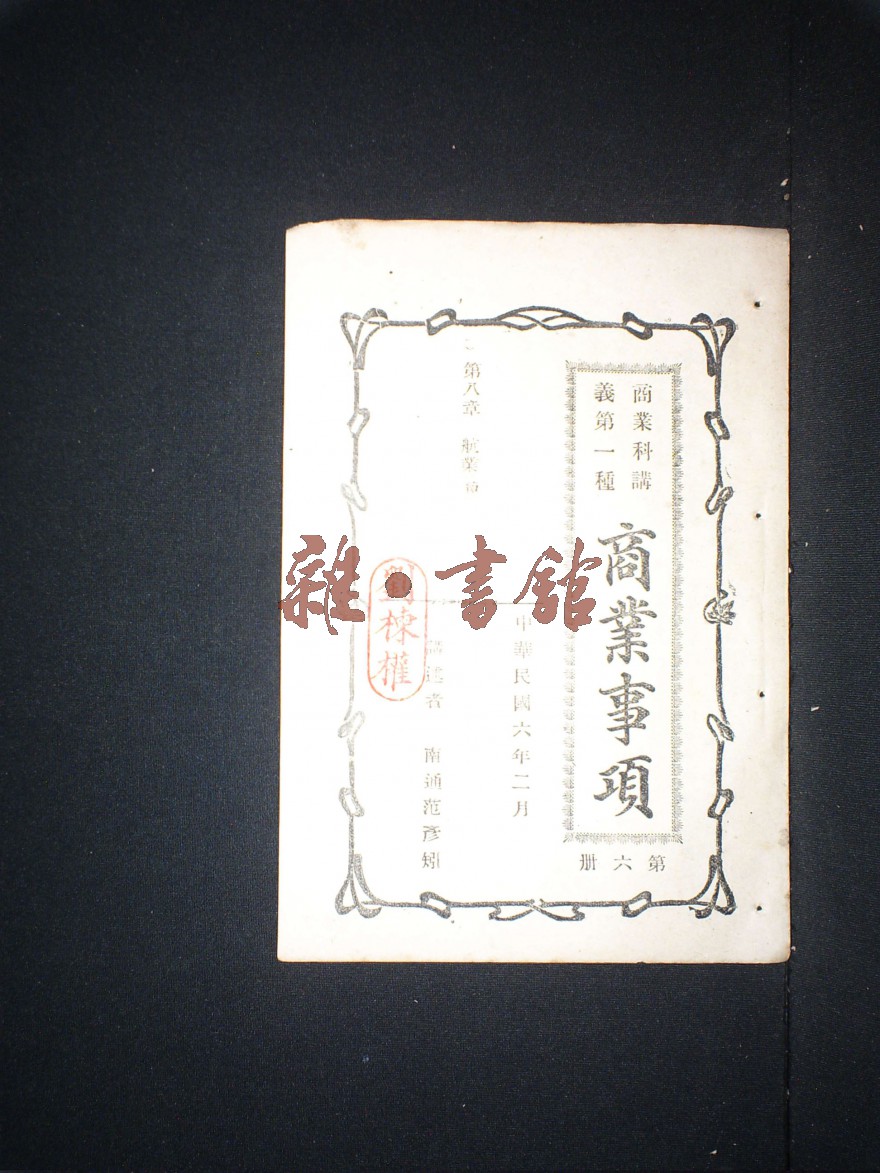 商業科講
義第一種
商業事項
第六册
中華民國六年二月
第八章 航業
講述者 南通范彥矧
劉棟權
雜·書館